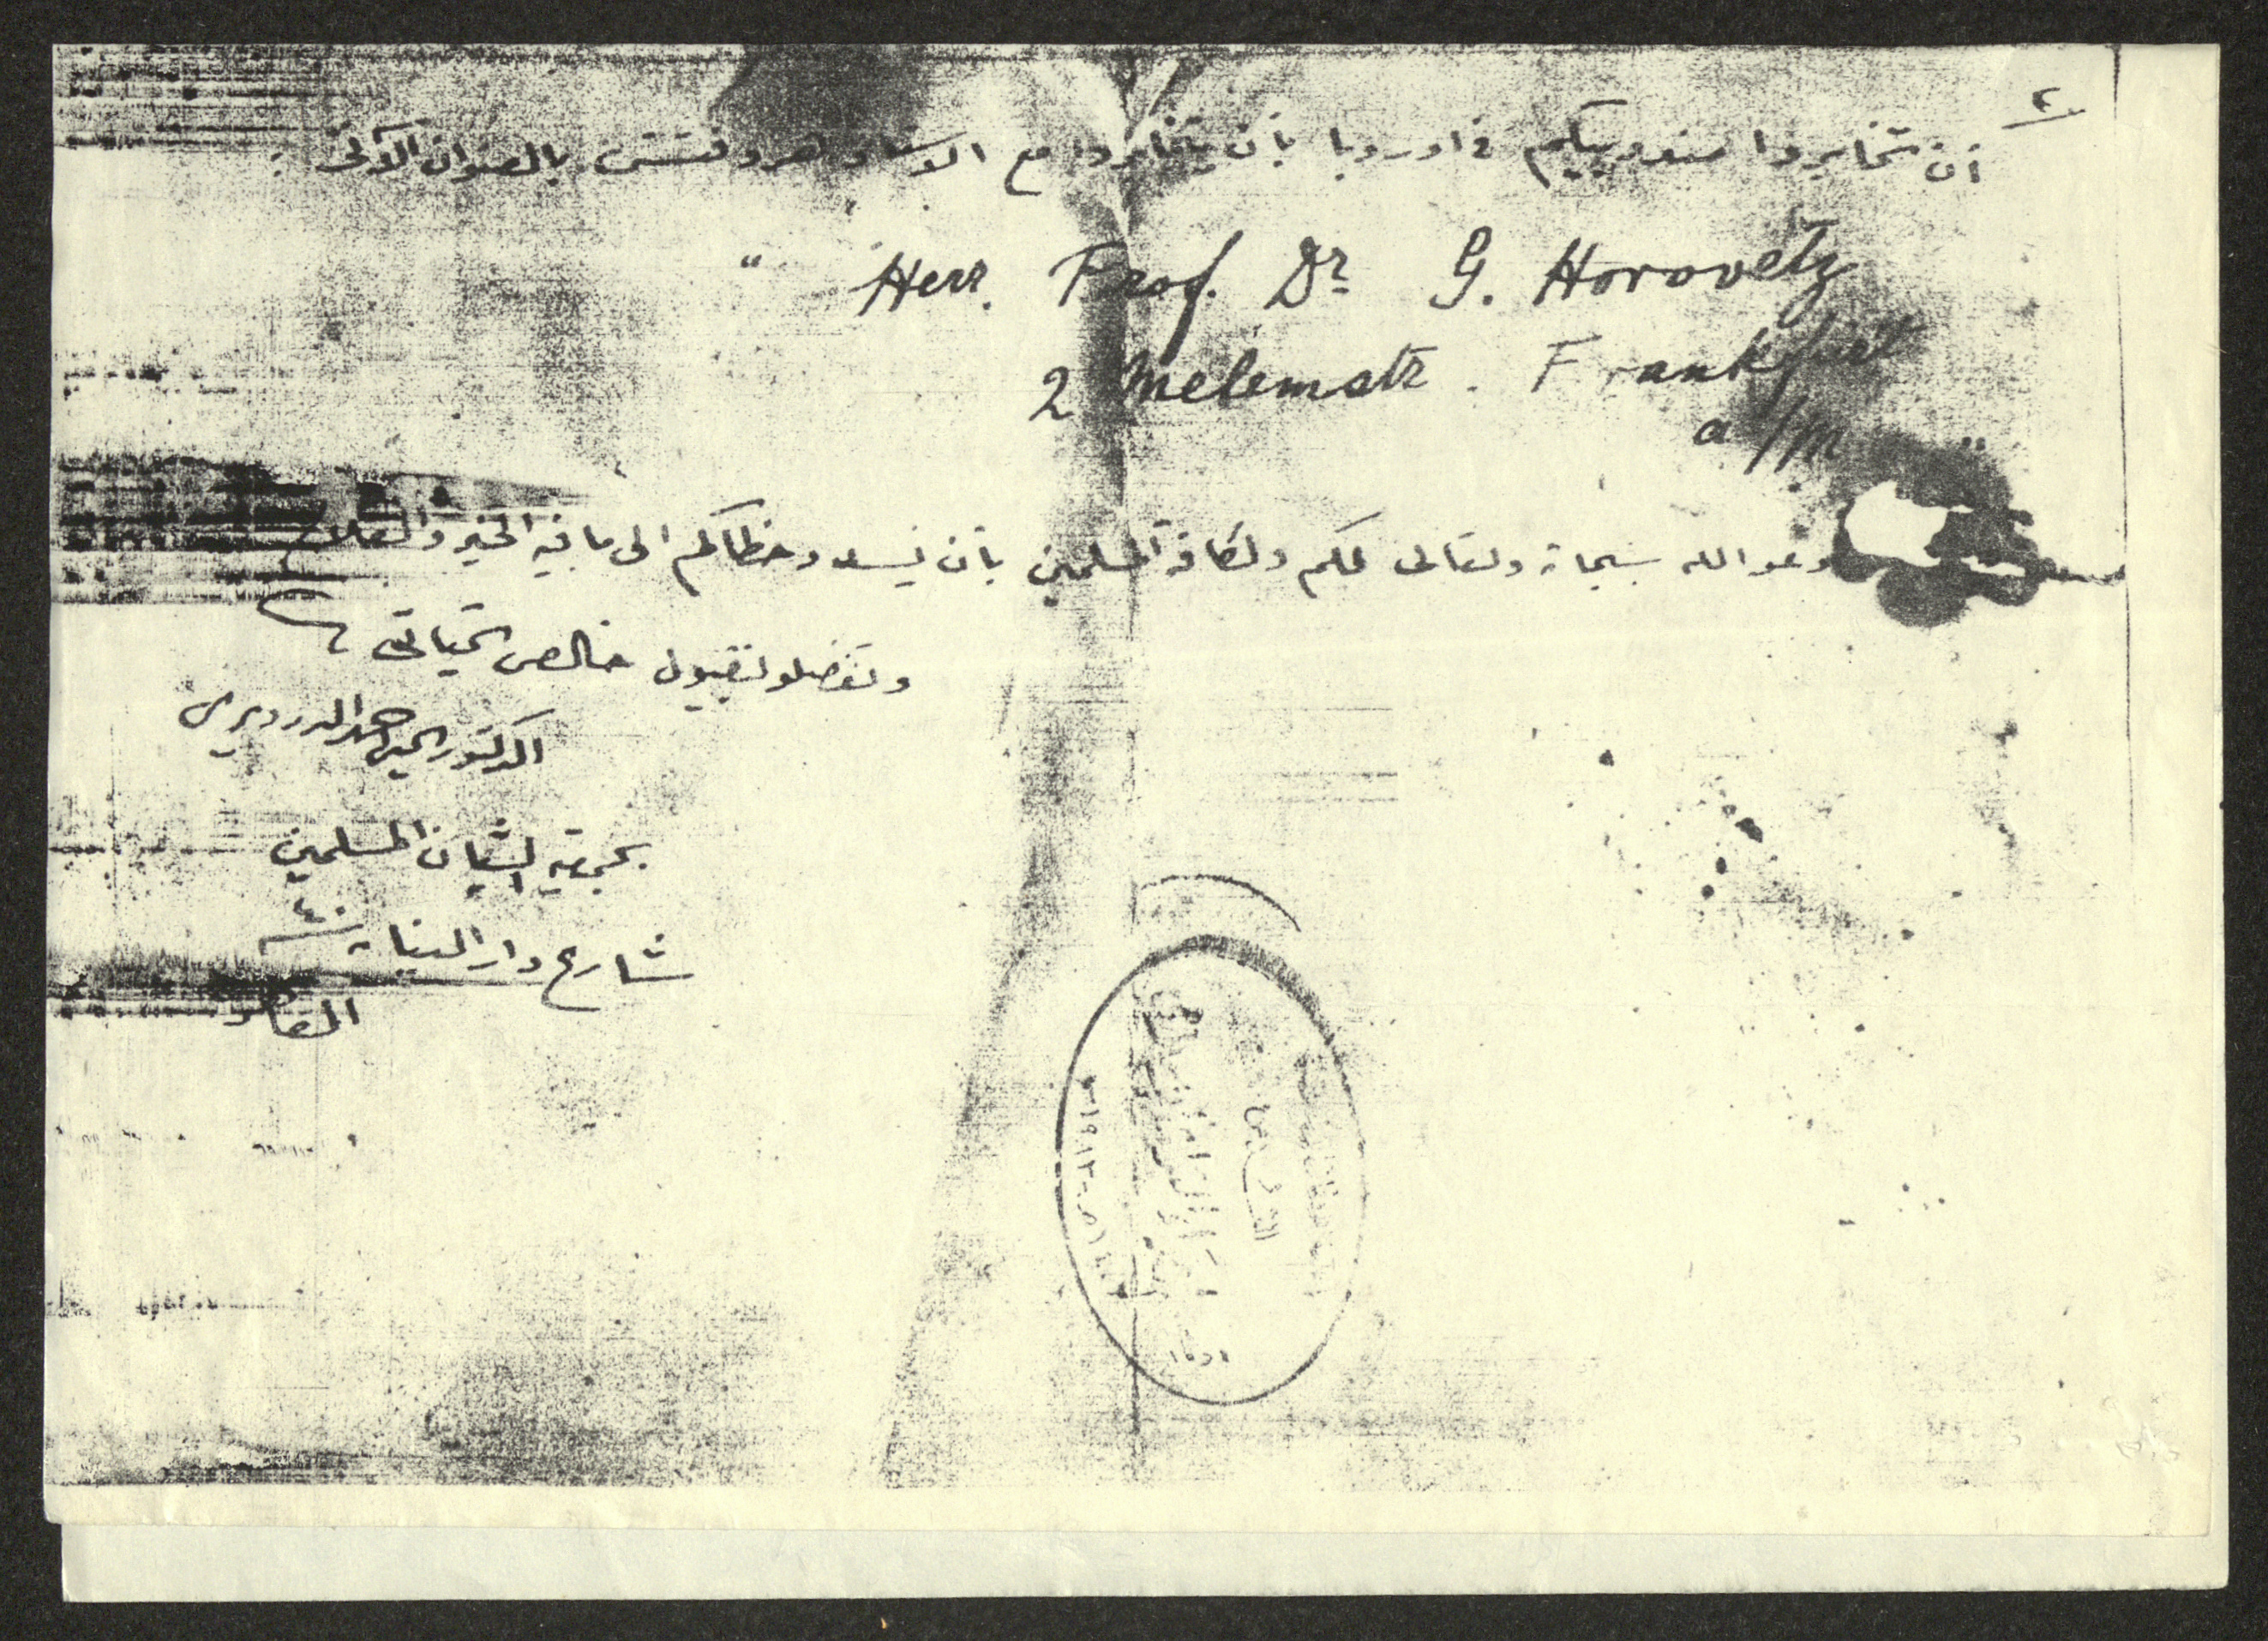 ٢
أن تخابروا مندوبيكم في اوروبا بأن يتخابروا مع الاستاذ هروفتس بالعنوان الآتى :
" Herr. Prof. Dr G. Horovetz
2 Melemstr. Frankfurt
a/M "
وندعو الله سبحانه وتعالى لكم ولكافة المسلمين بأن يسدد خطاكم الى ما فيه الخير والفلاح
وتفضلو بقبول خالص تحياتى
الدكتور يحيى احمد الدرديرى
بجمعية الشبان المسلمين
شارع دار النيابة
القاهرة